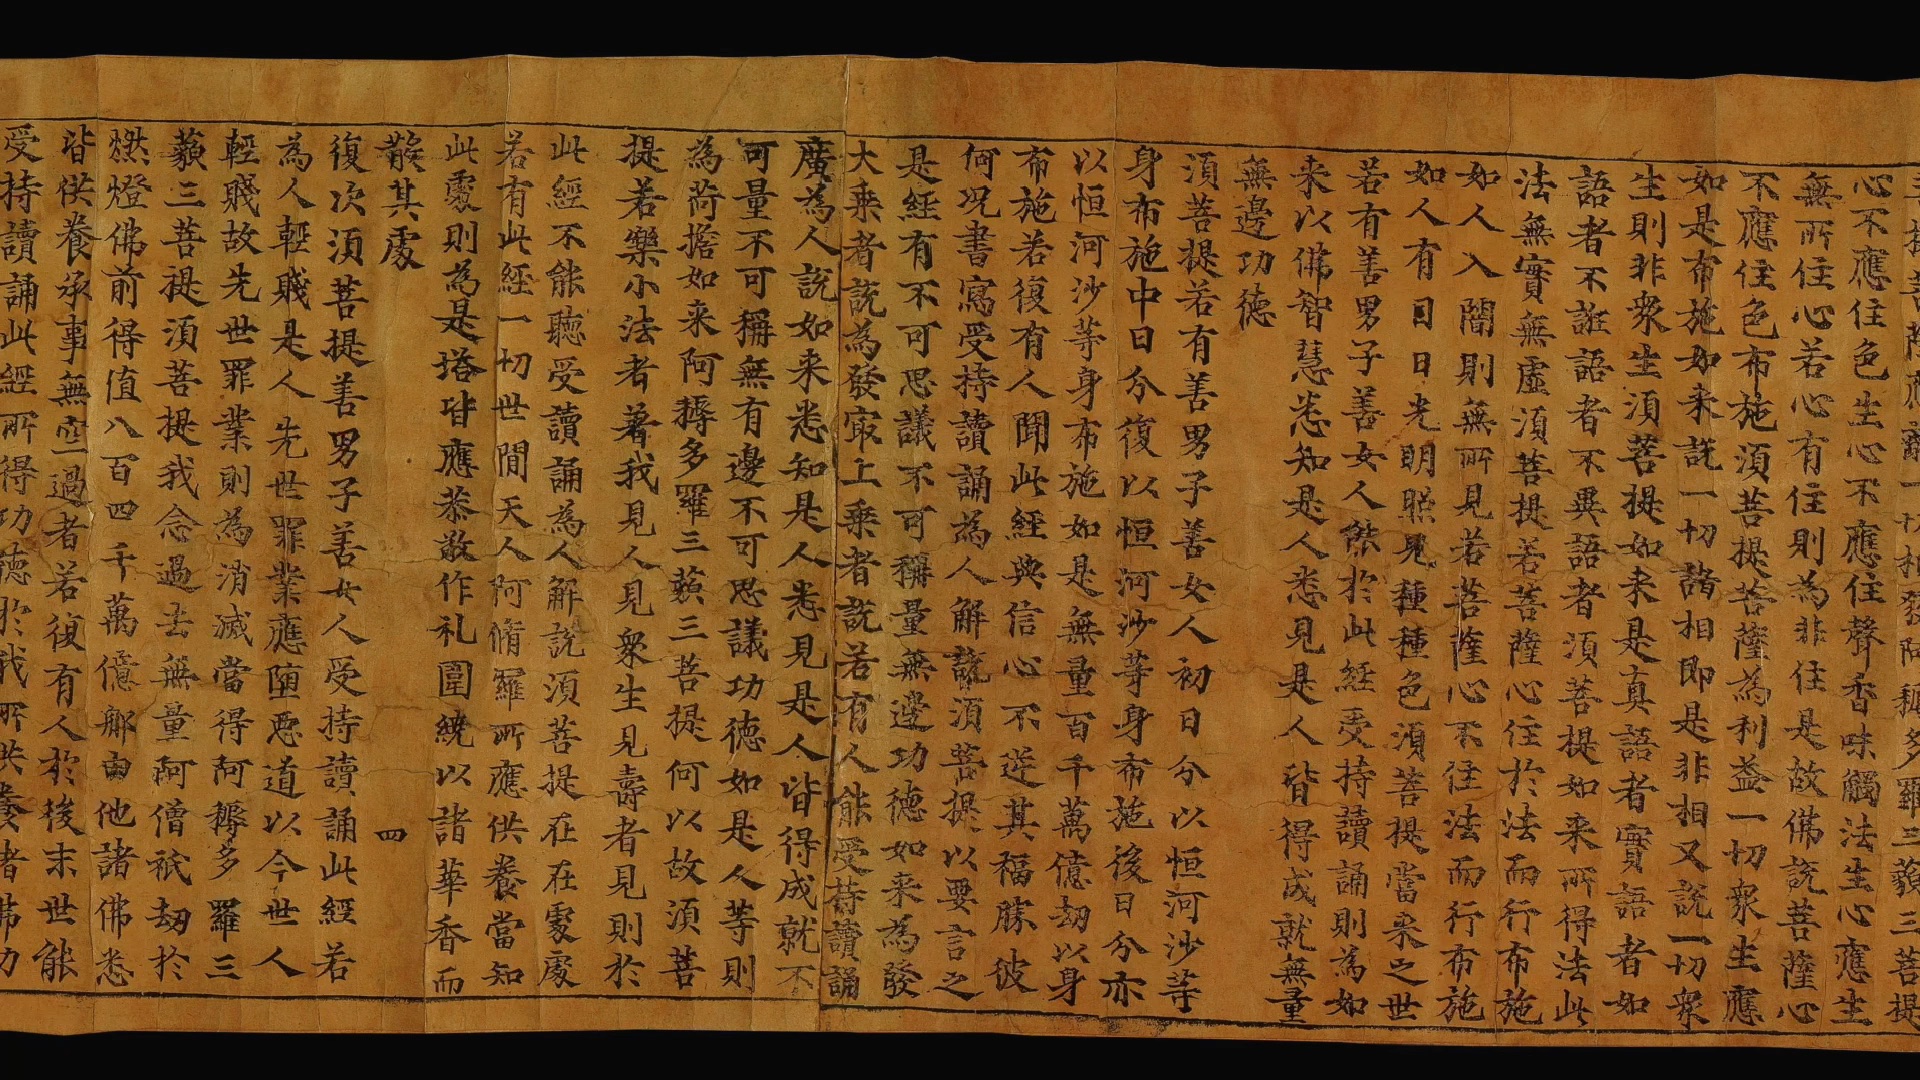 三提菩薩應離一切相發阿耨多羅三藐三菩提
心不應住色生心不應住聲香味觸法生心應生
無所住心若心有住則為非住是故佛說菩薩心
不應住色布施須菩提菩薩為利益一切衆生應
如是布施如来說一切諸相即是非相又說一切衆
生則非衆生須菩提如来是真語者實語者如
語者不誑語者不異語者須菩提如来所得法此
法無實無虛須菩提若菩薩心住於法而行布施
如人入闇則無所見若菩薩心不住法而行布施
如人有目日光明照見種種色須菩提當来之世
若有善男子善女人能於此經受持讀誦則為如
来以佛智慧悉知是人悉見是人皆得成就無量
無邊功德
須菩提若有善男子善女人初日分以恒河沙等
身布施中日分復以恒河沙等身布施後日分亦
以恒河沙等身布施如是無量百千萬億劫以身
布施若復有人聞此經典信心不逆其福勝彼
何況書寫受持讀誦為人解說須菩提以要言之
是經有不可思議不可稱量無邊功德如来為發
大乗者說為發冣上乗者說若有人能受持讀誦
廣為人說如来悉知是人悉見是人皆得成就不
可量不可稱無有邊不可思議功德如是人等則
為荷擔如来阿耨多羅三藐三菩提何以故須菩
提若樂小法者著我見人見衆生見壽者見則於
此經不能聽受讀誦為人解說須菩提在在處處
若有此經一切世間天人阿脩羅所應供養當知
此處則為是塔皆應恭敬作礼圍繞以諸華香而
散其處
四
復次須菩提善男子善女人受持讀誦此經若
為人輕賤是人先世罪業應墮惡道以今世人
輕賤故先世罪業則為消滅當得阿耨多羅三
藐三菩提須菩提我念過去無量阿僧祇劫於
燃燈佛前得值八百四千萬億那由他諸佛悉
皆供養承事無空過者若復有人於後末世能
受持讀誦此經所得功德於我所供養諸佛功